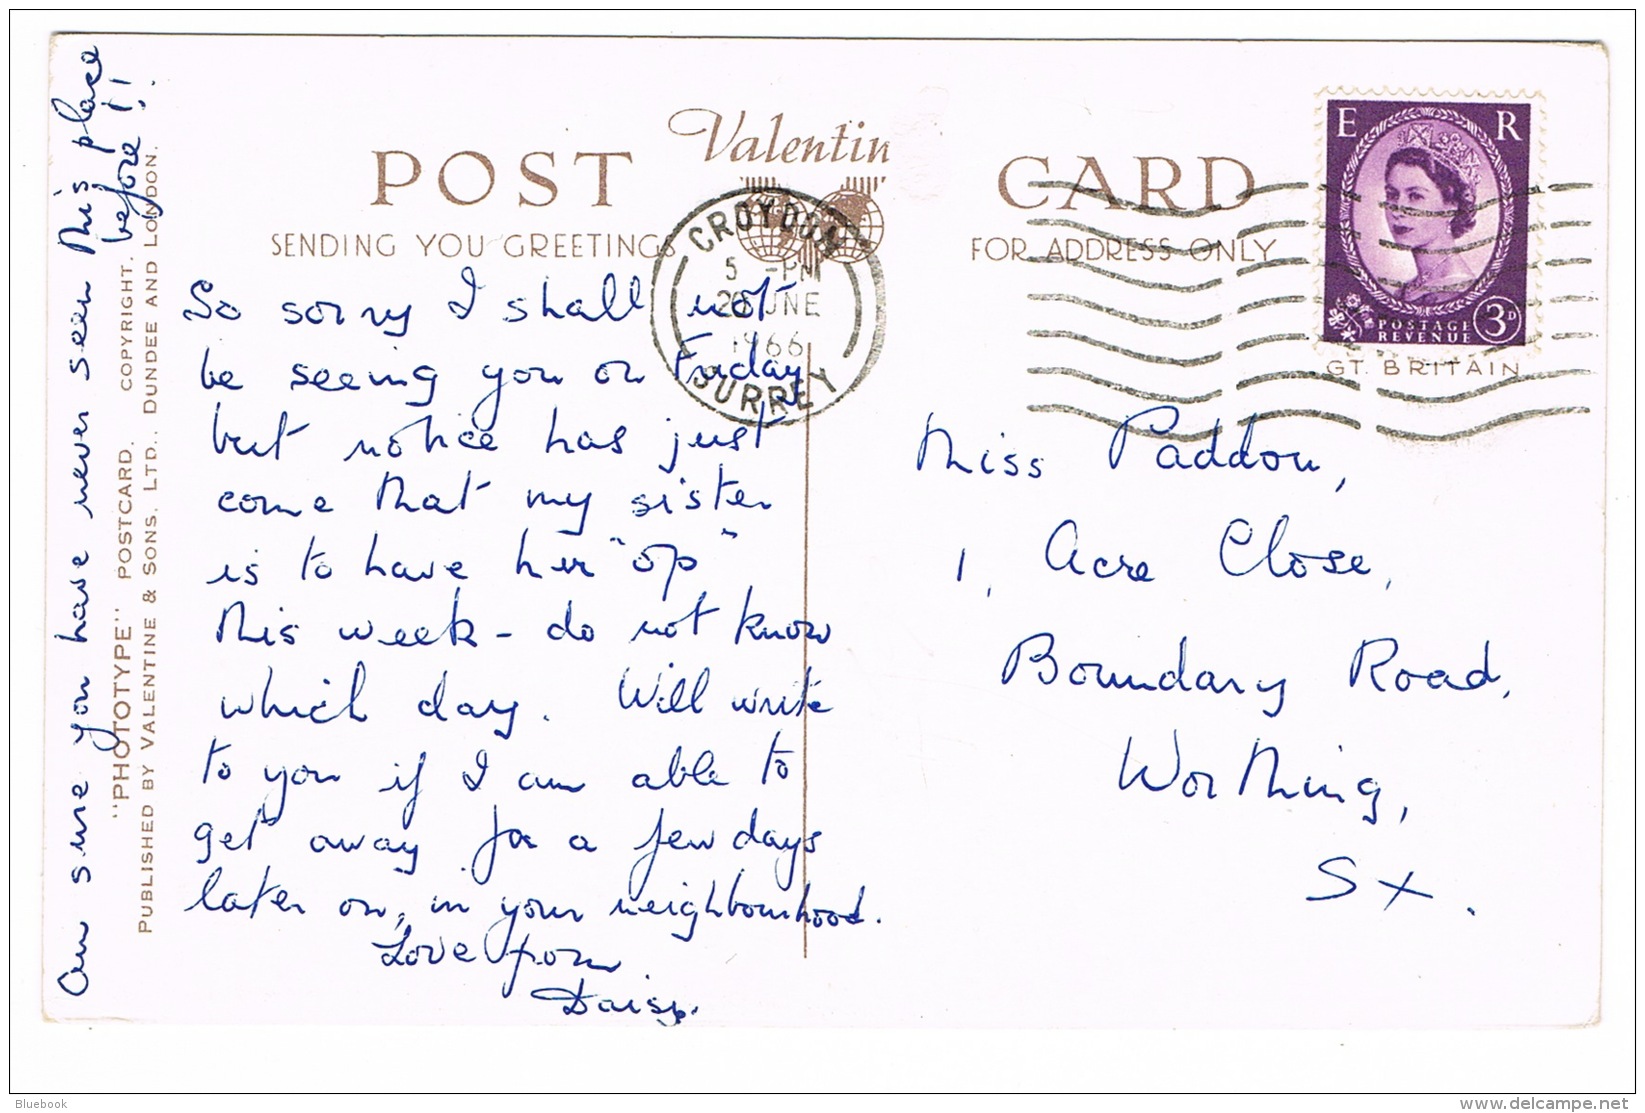 Valentin
POST CARD
SENDING YOU GREETINGS
FOR ADDRESS ONLY
CROYDON
5 -PM
JNE
1966
SURREY
E R
POSTAGE
REVENUE
3D
GT. BRITAIN
So sorry I shall not
be seeing you on Friday
but notice has just
come that my sister
is to have her "op"
this week - do not know
which day. Will write
to you if I am able to
get away for a few days
later on, in your neighbourhood.
Love from
Daisy.
Am sure you have never seen this place
before!!
"PHOTOTYPE" POSTCARD. COPYRIGHT.
PUBLISHED BY VALENTINE & SONS, LTD., DUNDEE AND LONDON.
Miss Paddon,
1, Acre Close,
Boundary Road,
Worthing,
Sx.
Bluebook
delcampe.net